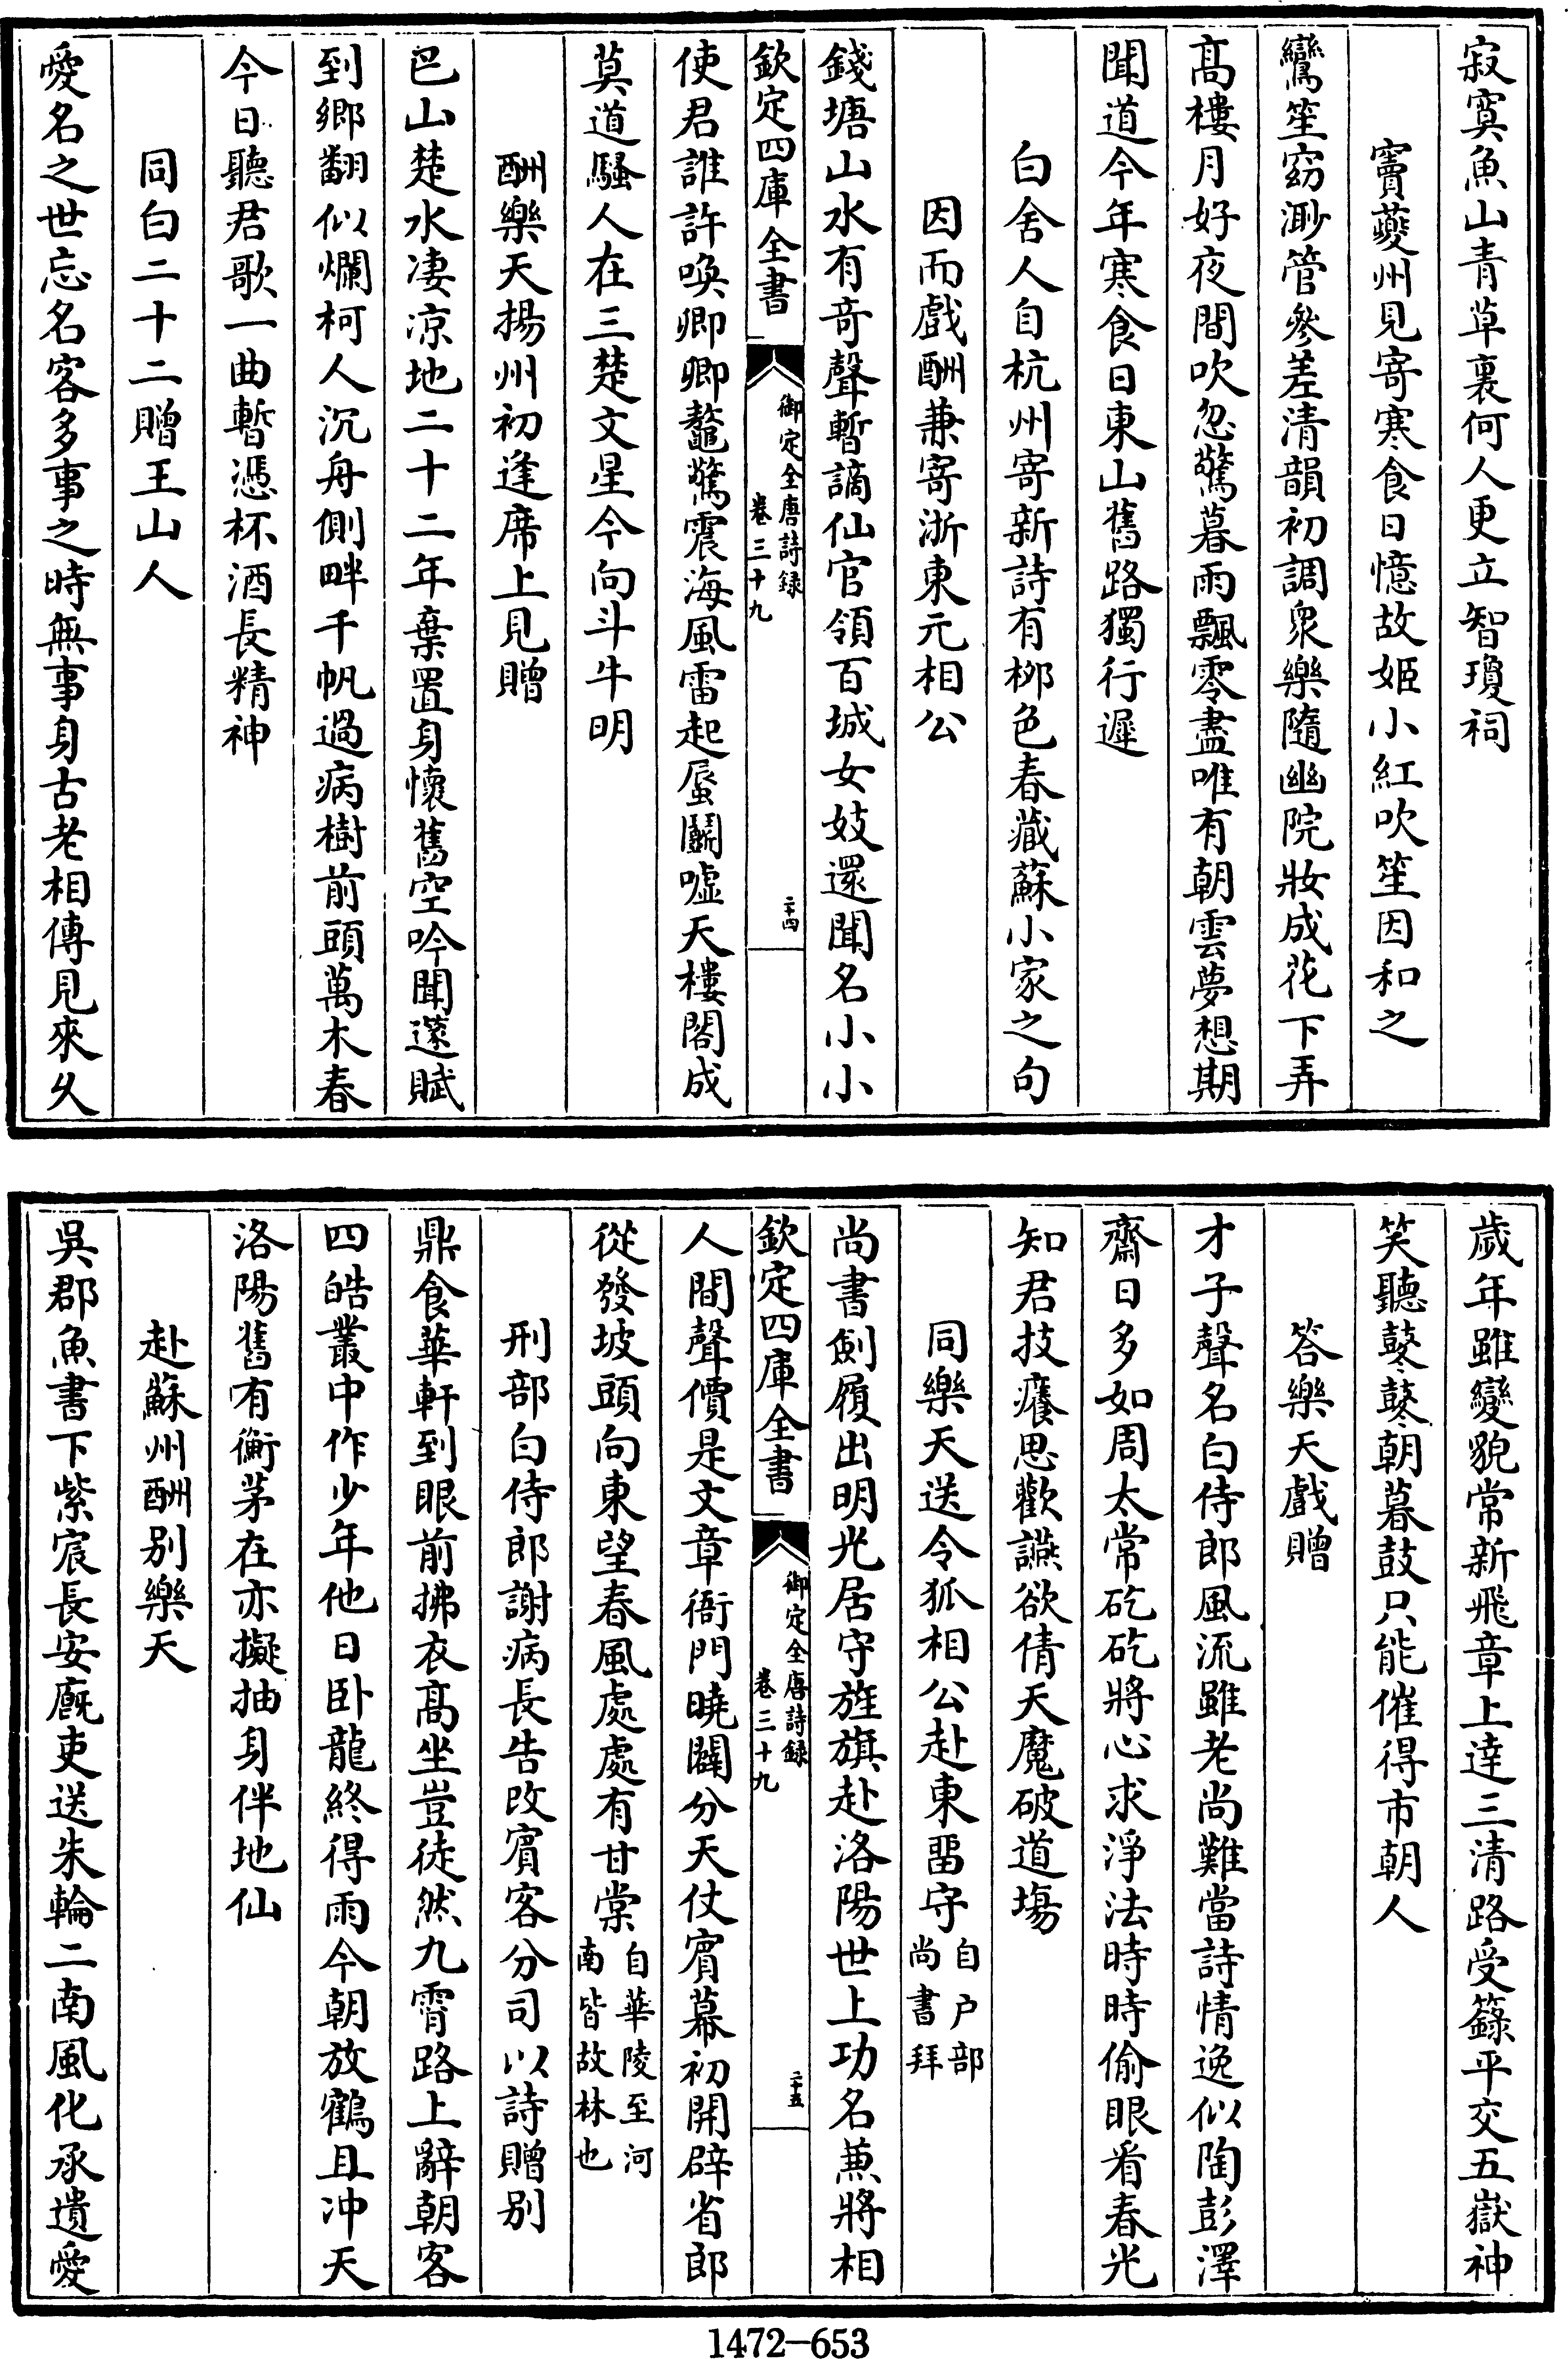 寂寞魚山青草裏何人更立智瓊祠
竇夔州見寄寒食日憶故姬小紅吹笙因和之
鸞笙窈渺管參差清韻初調衆樂隨幽院妝成花下弄
高樓月好夜間吹忽驚暮雨飄零盡唯有朝雲夢想期
聞道今年寒食日東山舊路獨行遲
白舍人自杭州寄新詩有栁色春藏蘇小家之句
因而戲酬兼寄浙東元相公
錢塘山水有奇聲暫謫仙官領百城女妓還聞名小小
欽定四庫全書
御定全唐詩録
卷三十九
二十四
使君誰許喚卿卿鼇驚震海風雷起蜃鬭噓天樓閣成
莫道騷人在三楚文星今向斗牛明
酬樂天揚州初逢席上見贈
巴山楚水凄凉地二十二年棄置身懷舊空吟聞邃賦
到鄉翻似爛柯人沉舟側畔千帆過病樹前頭萬木春
今日聽君歌一曲暫憑杯酒長精神
同白二十二贈王山人
愛名之世忘名客多事之時無事身古老相傳見來久
歲年雖變貌常新飛章上達三清路受籙平交五嶽神
笑聽鼕鼕朝暮鼓只能催得市朝人
答樂天戲贈
才子聲名白侍郎風流雖老尚難當詩情逸似陶彭澤
齋日多如周太常矻矻將心求淨法時時偷眼看春光
知君技癢思歡讌欲倩天魔破道塲
同樂天送令狐相公赴東畱守自户部尚書拜
尚書劍履出明光居守旌旗赴洛陽世上功名兼將相
欽定四庫全書
御定全唐詩録
卷三十九
二十五
人間聲價是文章衙門曉闢分天仗賔幕初開辟省郎
從發坡頭向東望春風處處有甘棠自華陵至河南皆故林也
刑部白侍郎謝病長告改賔客分司以詩贈别
鼎食華軒到眼前拂衣高坐豈徒然九霄路上辭朝客
四皓叢中作少年他日卧龍終得雨今朝放鶴且冲天
洛陽舊有衡茅在亦擬抽身伴地仙
赴蘇州酬别樂天
吳郡魚書下紫宸長安厩吏送朱輪二南風化承遺愛
1472-653